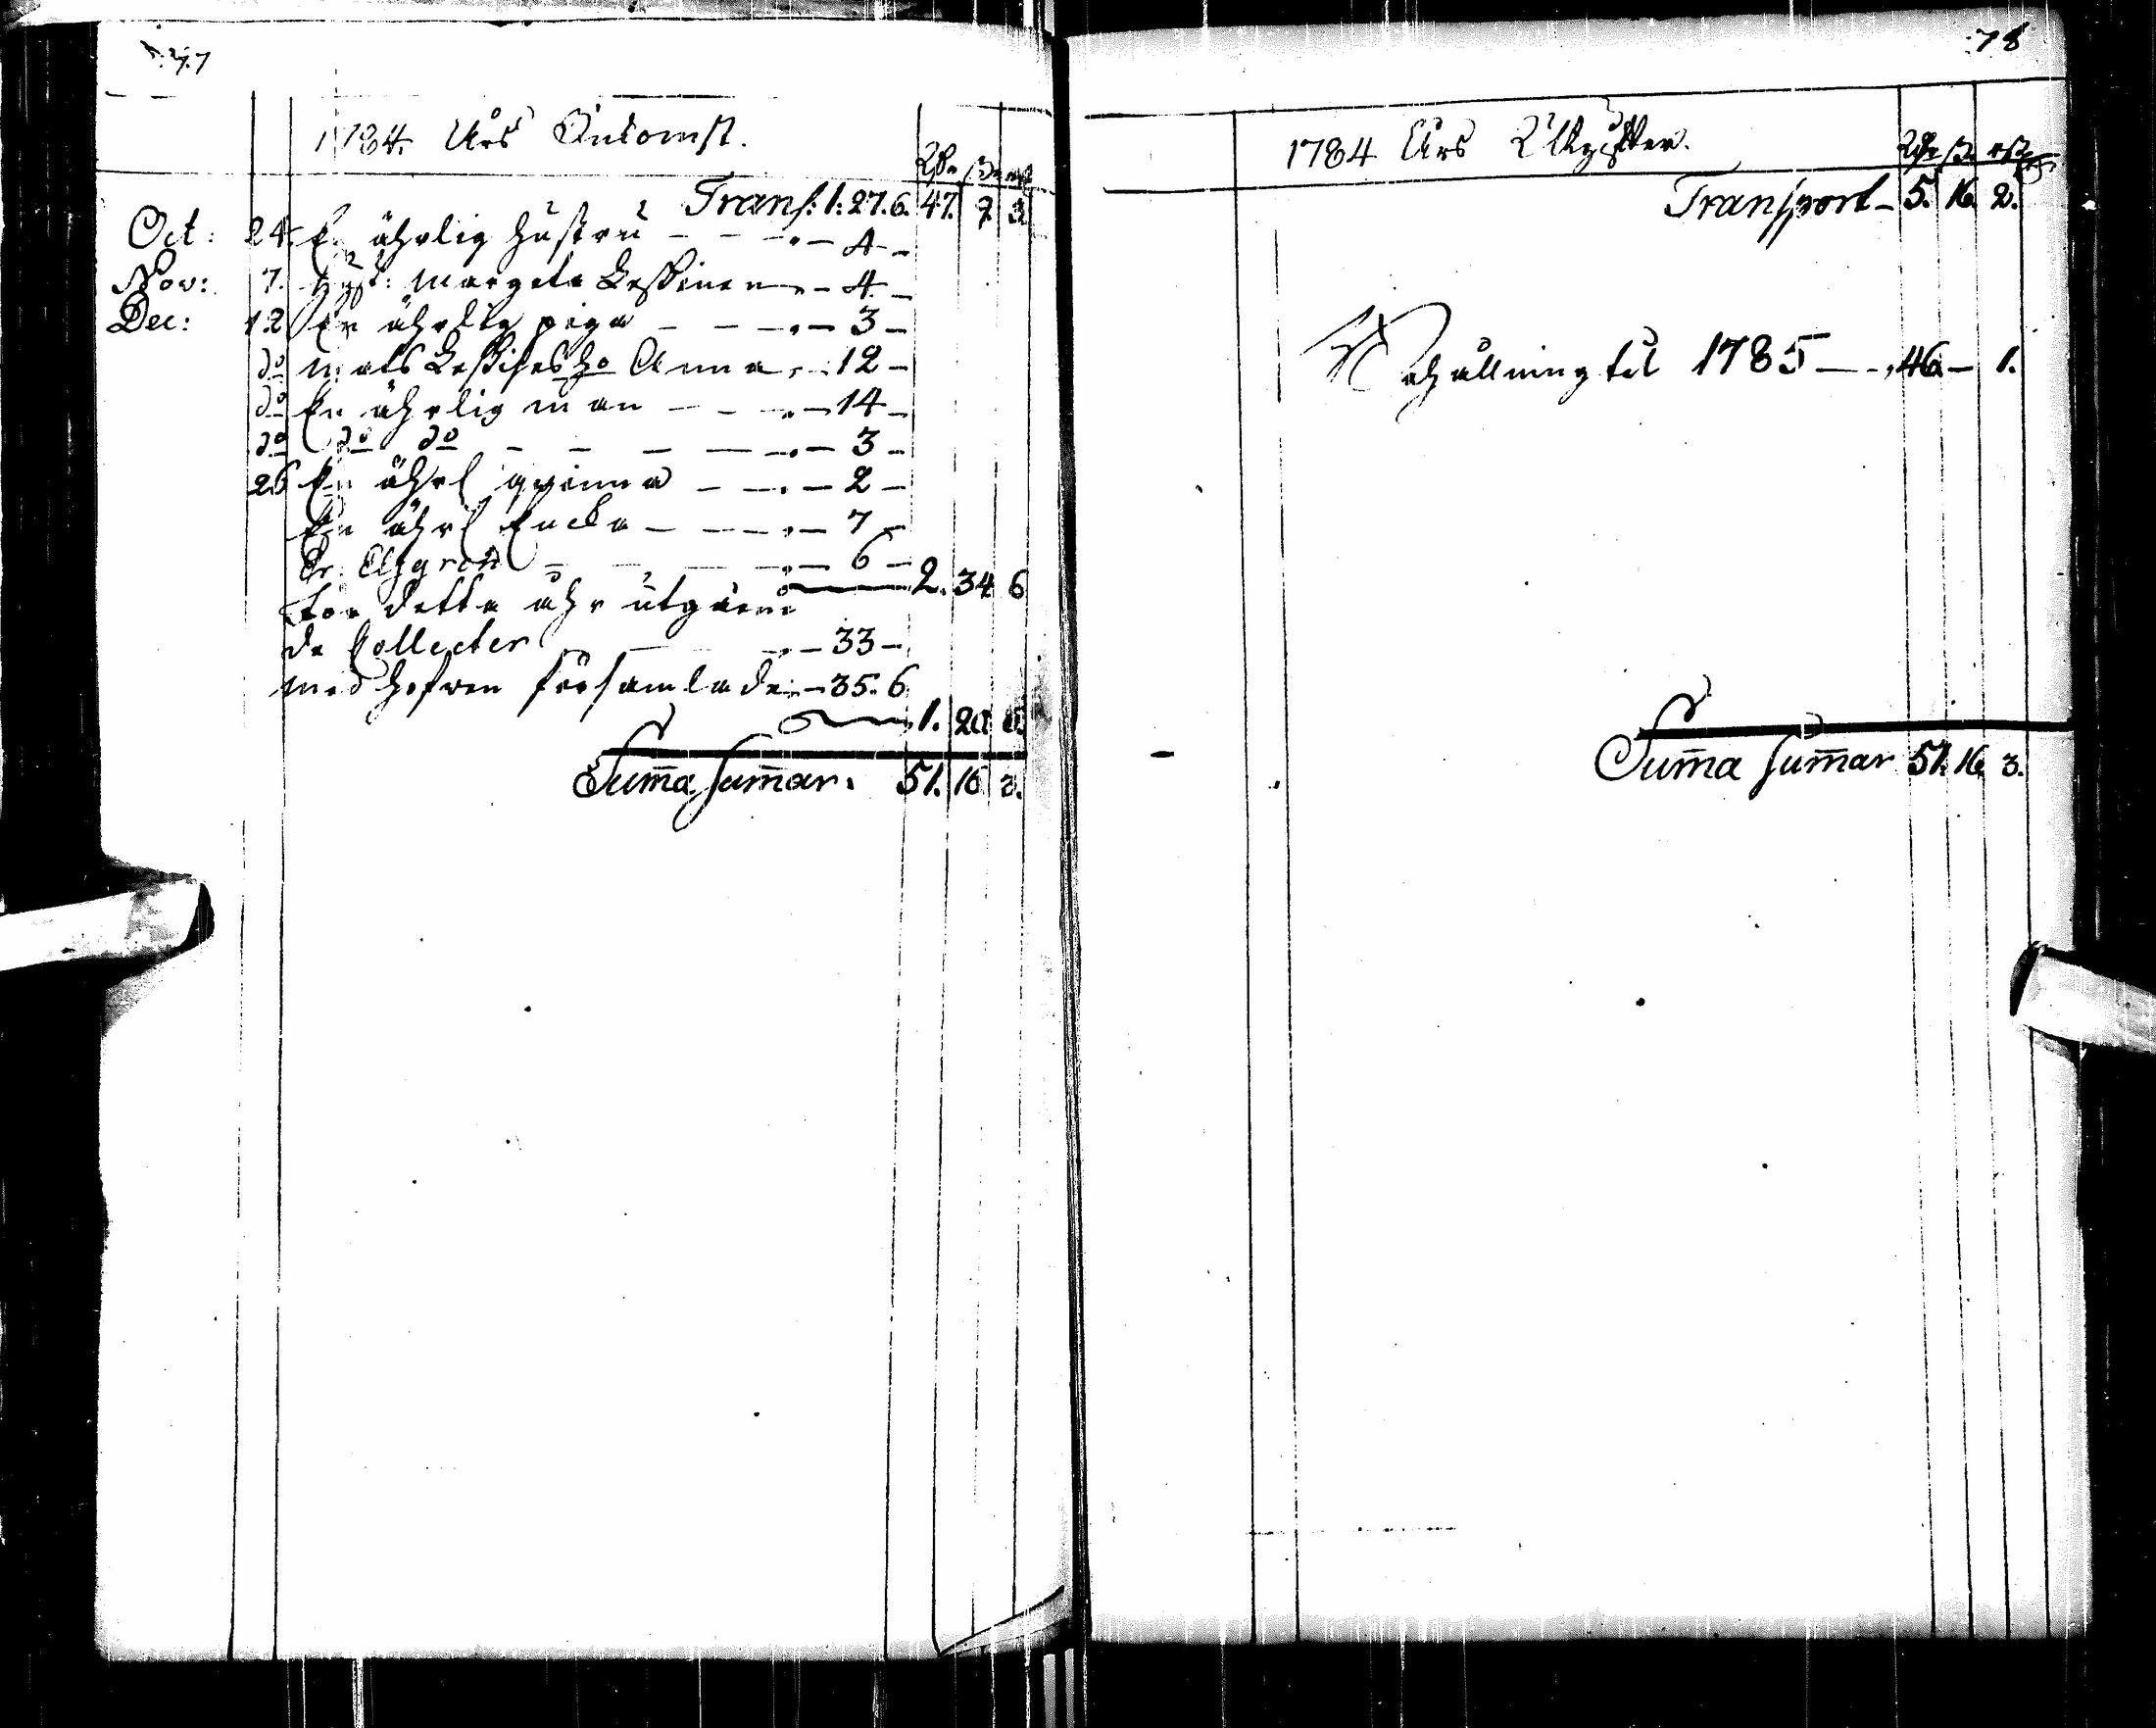 77
1784. Års Inkomst.
Rdr ß rst
Transp: 1: 27. 6. 47. 9 3
Oct: 24. En ährlig hustru - - - 4 -
Nov: 7. Hust: Margeta Leskinen - 4 -
Dec: 12 En ährlig piga - - - 3 -
do Mats Leskises ho Anna - 12 -
do En ährlig man - - - 14 -
do do do - - - - - 3 -
26 En ährl qvinna - - - 2 -
En ährl Encka - - - 7 -
Er. Elfgren - - - 6 -
2. 34 6
För detta åhr utgåen
de Collecter - - 33 -
med hofven församlade - 35. 6
1. 20 6
Summa Summar. 51. 16 3.
78
1784 Års Utgifter.
Rdr ß rst
Transport - 5. 16. 2.
Behållning til 1785 - - 46. - 1.
Summa Summar 51. 16. 3.